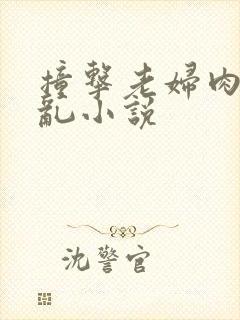 撞擊老婦肉
亂小說
沈警官